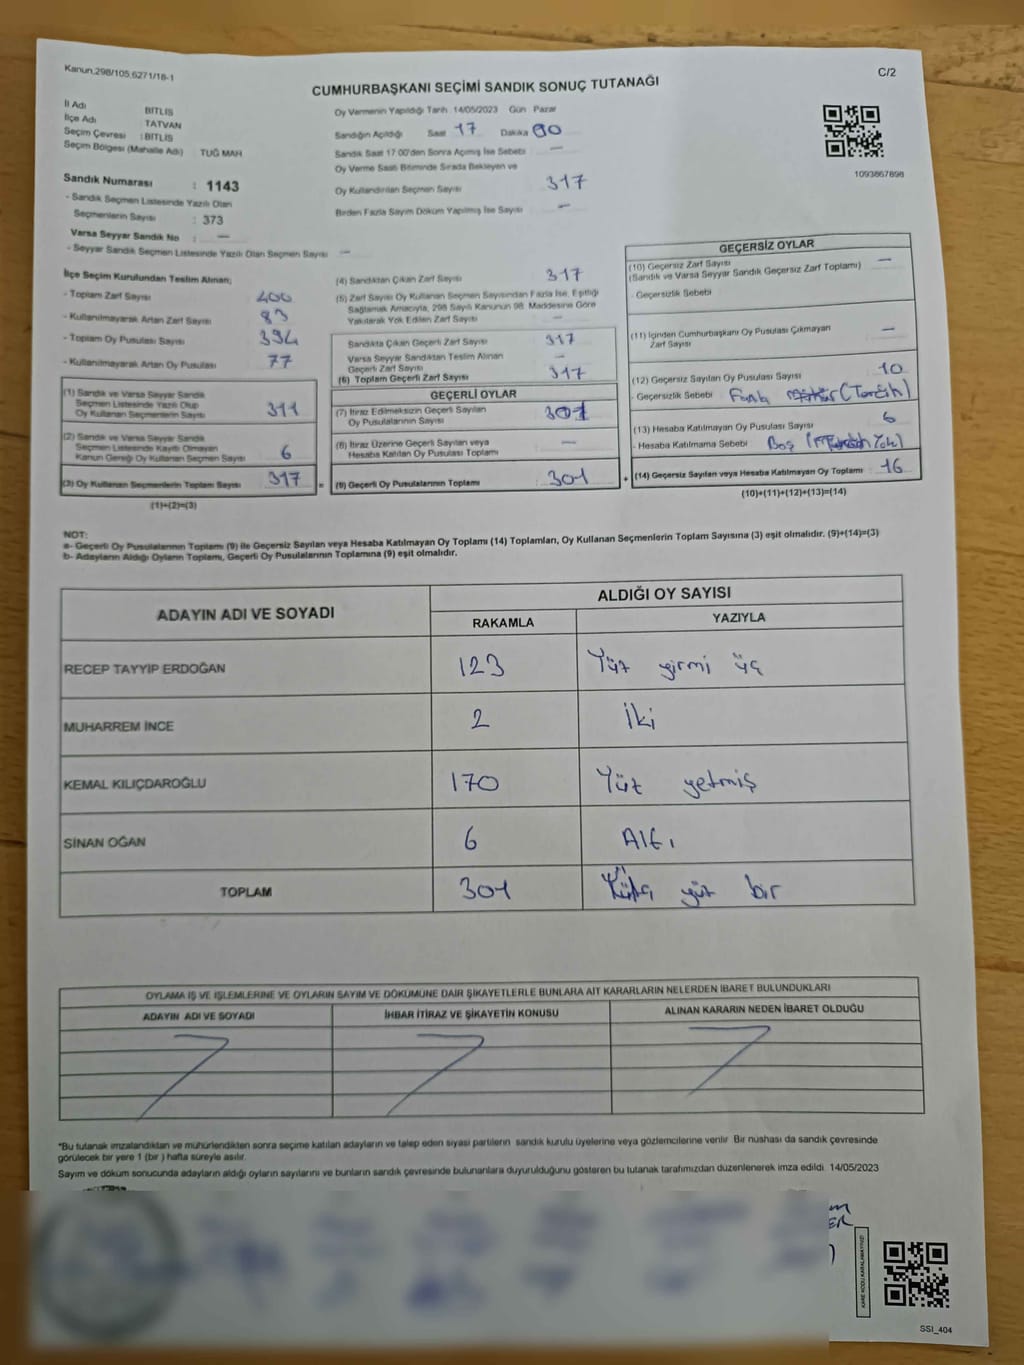 Kanun,298/105,6271/18-1
C/2
CUMHURBAŞKANI SEÇİMİ SANDIK SONUÇ TUTANAĞI
İl Adı BİTLİS
İlçe Adı TATVAN
Seçim Çevresi : BİTLİS
Seçim Bölgesi (Mahalle Adı) TUĞ MAH
Oy Vermenin Yapıldığı Tarih 14/05/2023 Gün Pazar
Sandığın Açıldığı Saat 17 Dakika 00
Sandık Saat 17:00'den Sonra Açılmış İse Sebebi —
Oy Verme Saati Bitiminde Sırada Bekleyen ve
Oy Kullandırılan Seçmen Sayısı 317
Birden Fazla Sayım Döküm Yapılmış İse Sayısı —
1093867898
Sandık Numarası : 1143
- Sandık Seçmen Listesinde Yazılı Olan
Seçmenlerin Sayısı : 373
Varsa Seyyar Sandık No : —
- Seyyar Sandık Seçmen Listesinde Yazılı Olan Seçmen Sayısı —
İlçe Seçim Kurulundan Teslim Alınan;
- Toplam Zarf Sayısı 400
- Kullanılmayarak Artan Zarf Sayısı 83
- Toplam Oy Pusulası Sayısı 394
- Kullanılmayarak Artan Oy Pusulası 77
(1) Sandık ve Varsa Seyyar Sandık
Seçmen Listesinde Yazılı Olup
Oy Kullanan Seçmenlerin Sayısı 311
(2) Sandık ve Varsa Seyyar Sandık
Seçmen Listesinde Kayıtlı Olmayan
Kanun Gereği Oy Kullanan Seçmen Sayısı 6
(3) Oy Kullanan Seçmenlerin Toplam Sayısı 317
(1)+(2)=(3)
(4) Sandıktan Çıkan Zarf Sayısı 317
(5) Zarf Sayısı Oy Kullanan Seçmen Sayısından Fazla İse, Eşitliği
Sağlamak Amacıyla, 298 Sayılı Kanunun 98. Maddesine Göre
Yakılarak Yok Edilen Zarf Sayısı —
Sandıkta Çıkan Geçerli Zarf Sayısı 317
Varsa Seyyar Sandıktan Teslim Alınan
Geçerli Zarf Sayısı —
(6) Toplam Geçerli Zarf Sayısı 317
=
GEÇERLİ OYLAR
(7) İtiraz Edilmeksizin Geçerli Sayılan
Oy Pusulalarının Sayısı 301
(8) İtiraz Üzerine Geçerli Sayılan veya
Hesaba Katılan Oy Pusulası Toplamı —
(9) Geçerli Oy Pusulalarının Toplamı 301
+
GEÇERSİZ OYLAR
(10) Geçersiz Zarf Sayısı —
(Sandık ve Varsa Seyyar Sandık Geçersiz Zarf Toplamı)
- Geçersizlik Sebebi
(11) İçinden Cumhurbaşkanı Oy Pusulası Çıkmayan
Zarf Sayısı —
(12) Geçersiz Sayılan Oy Pusulası Sayısı 10
- Geçersizlik Sebebi Fazla Mühür (Tercih)
(13) Hesaba Katılmayan Oy Pusulası Sayısı 6
- Hesaba Katılmama Sebebi Boş ( Yok)
(14) Geçersiz Sayılan veya Hesaba Katılmayan Oy Toplamı 16
(10)+(11)+(12)+(13)=(14)
NOT:
a- Geçerli Oy Pusulalarının Toplamı (9) ile Geçersiz Sayılan veya Hesaba Katılmayan Oy Toplamı (14) Toplamları, Oy Kullanan Seçmenlerin Toplam Sayısına (3) eşit olmalıdır. (9)+(14)=(3)
b- Adayların Aldığı Oyların Toplamı, Geçerli Oy Pusulalarının Toplamına (9) eşit olmalıdır.
ADAYIN ADI VE SOYADI
ALDIĞI OY SAYISI
RAKAMLA YAZIYLA
RECEP TAYYİP ERDOĞAN 123 Yüz yirmi üç
MUHARREM İNCE 2 İki
KEMAL KILIÇDAROĞLU 170 Yüz yetmiş
SİNAN OĞAN 6 Altı
TOPLAM 301 yüz bir
OYLAMA İŞ VE İŞLEMLERİNE VE OYLARIN SAYIM VE DÖKÜMÜNE DAİR ŞİKAYETLERLE BUNLARA AİT KARARLARIN NELERDEN İBARET BULUNDUKLARI
ADAYIN ADI VE SOYADI İHBAR İTİRAZ VE ŞİKAYETİN KONUSU ALINAN KARARIN NEDEN İBARET OLDUĞU
*Bu tutanak imzalandıktan ve mühürlendikten sonra seçime katılan adayların ve talep eden siyasi partilerin sandık kurulu üyelerine veya gözlemcilerine verilir. Bir nüshası da sandık çevresinde
görülecek bir yere 1 (bir ) hafta süreyle asılır.
Sayım ve döküm sonucunda adayların aldığı oyların sayılarını ve bunların sandık çevresinde bulunanlara duyurulduğunu gösteren bu tutanak tarafımızdan düzenlenerek imza edildi. 14/05/2023
KARE KODU KARALAMAYINIZ!
SSI_404